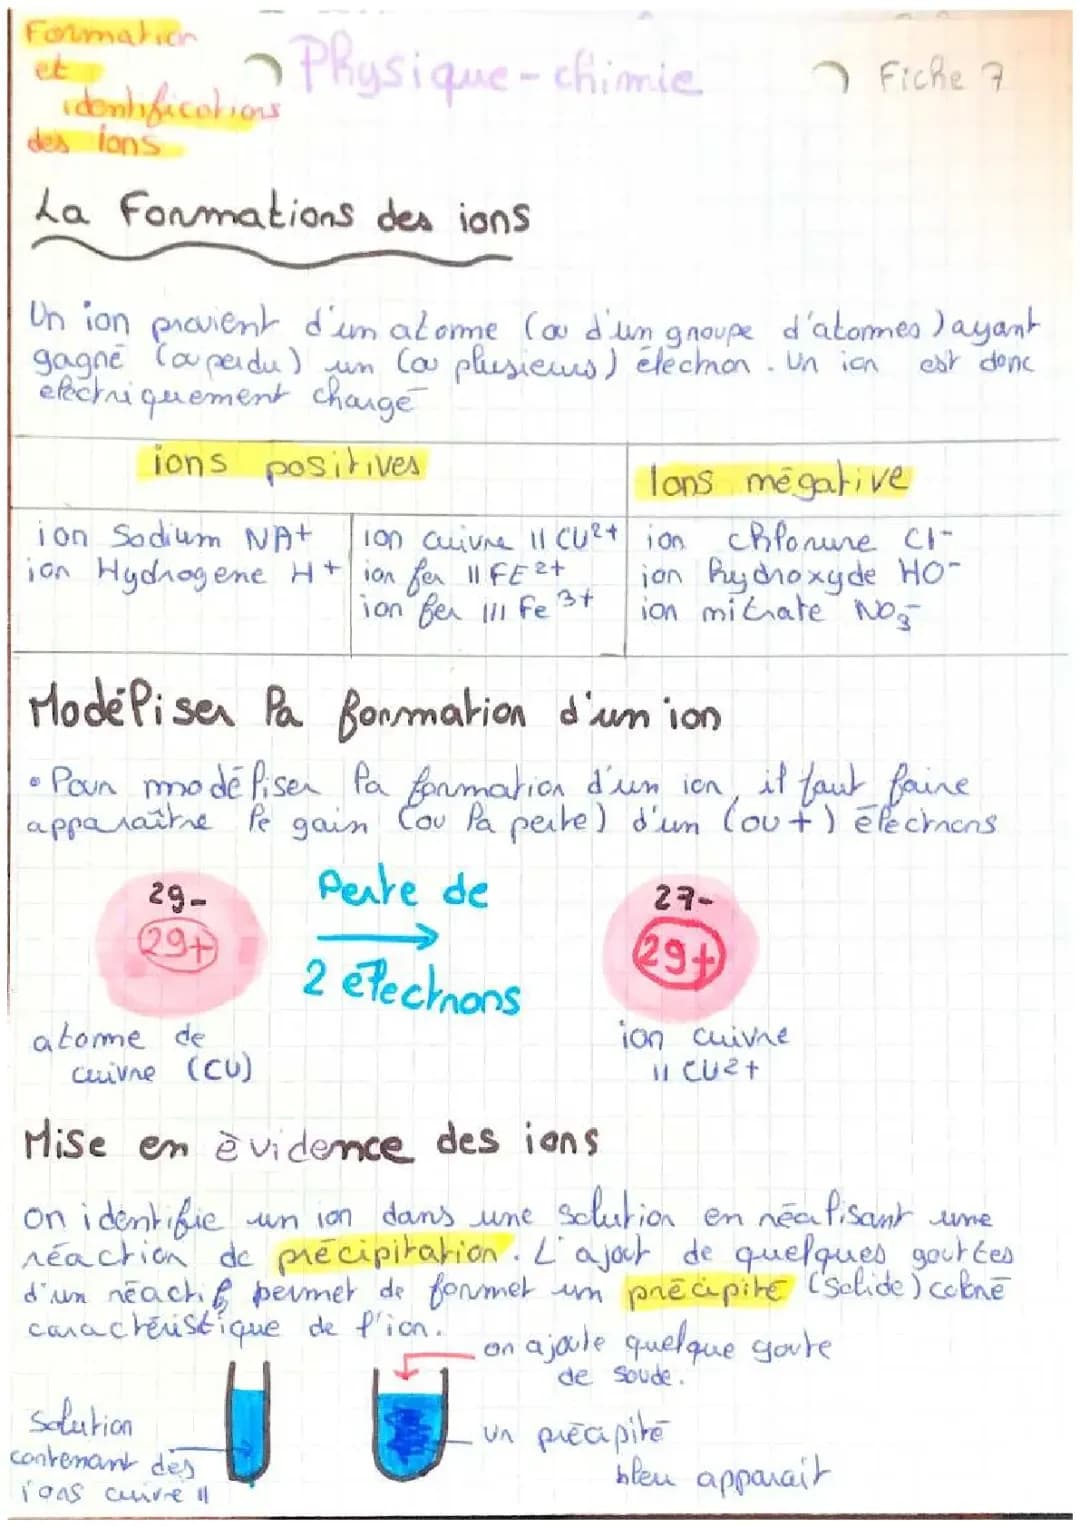 Formation
et
identifications
des ions
Physique-chimie
Fiche 7
La Formations des ions
Un ion provient d'un atome (ou d'un groupe d'atomes) ayant
gagné (ou perdu) un (ou plusieurs) électron. Un ion est donc
electriquement chargé
ions positives
Ions négative
ion Sodium NA+
ion Hydrogene H+
ion cuivre II CU2+
ion fer II FE2+
ion fer III Fe3+
ion chlorure Cl-
ion hydroxyde HO-
ion nitrate NO3-
Modéliser la formation d'un ion
• Pour modéliser la formation d'un ion, il faut faire
apparaître le gain (ou la perte) d'un (ou +) électrons
29-
29+
Perte de
2 électrons
27-
29+
atome de
cuivre (CU)
ion cuivre
II CU2+
Mise en èvidence des ions
on identifie un ion dans une solution en réalisant une
réaction de précipitation. L'ajout de quelques gouttes
d'un réactif permet de former un précipité (solide) coloré
caractéristique de l'ion.
on ajoute quelque goute
de soude.
Solution
contenant des
ions cuivre II
un précipité
bleu apparait